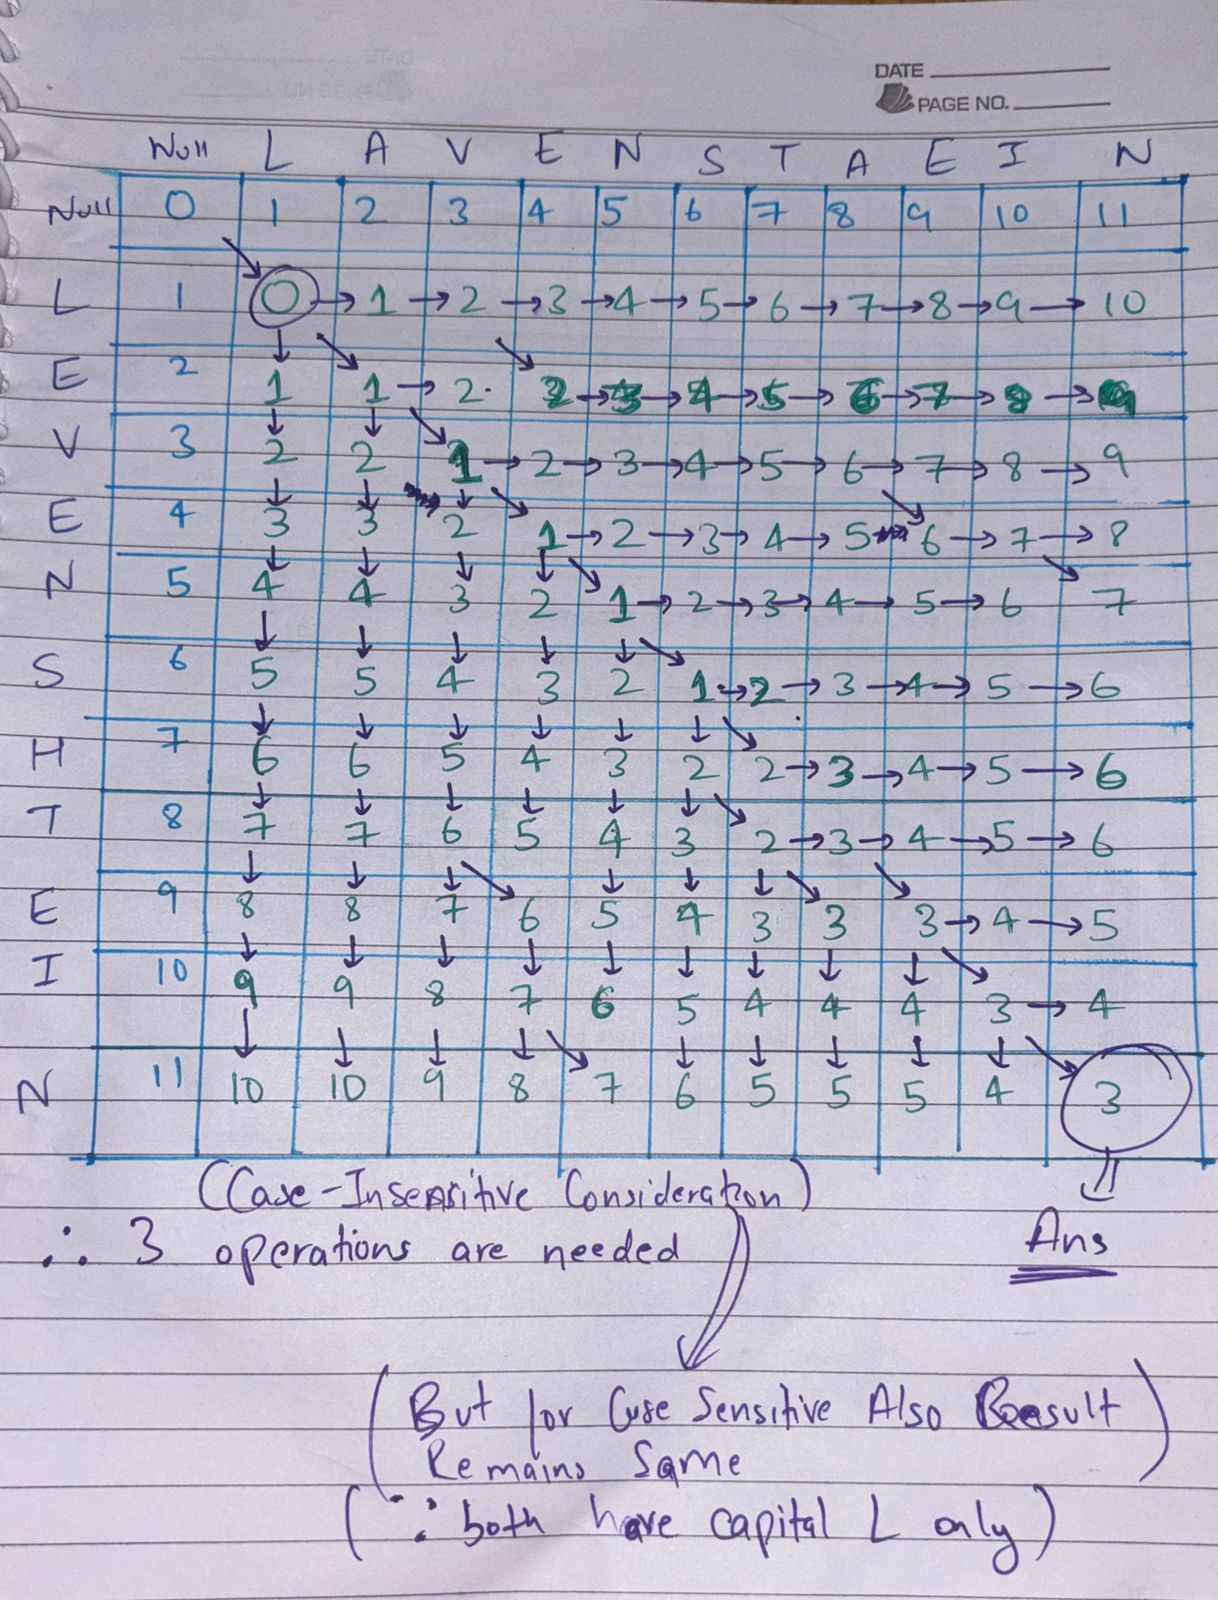 DATE
PAGE NO.
Null L A V E N S T A E I N
Null 0 1 2 3 4 5 6 7 8 9 10 11
L 1 0 → 1 → 2 → 3 → 4 → 5 → 6 → 7 → 8 → 9 → 10
E 2 1 1 → 2 2 → 3 → 4 → 5 → 6 → 7 → 8 → 9
V 3 2 2 1 → 2 → 3 → 4 → 5 → 6 → 7 → 8 → 9
E 4 3 3 2 1 → 2 → 3 → 4 → 5 6 → 7 → 8
N 5 4 4 3 2 1 → 2 → 3 → 4 → 5 → 6 7
S 6 5 5 4 3 2 1 → 2 → 3 → 4 → 5 → 6
H 7 6 6 5 4 3 2 2 → 3 → 4 → 5 → 6
T 8 7 7 6 5 4 3 2 → 3 → 4 → 5 → 6
E 9 8 8 7 6 5 4 3 3 3 → 4 → 5
I 10 9 9 8 7 6 5 4 4 4 3 → 4
N 11 10 10 9 8 7 6 5 5 5 4 3
(Case-Insensitive Consideration)
∴ 3 operations are needed
Ans
(But for Case Sensitive Also Result
Remains Same)
(∵ both have capital L only)